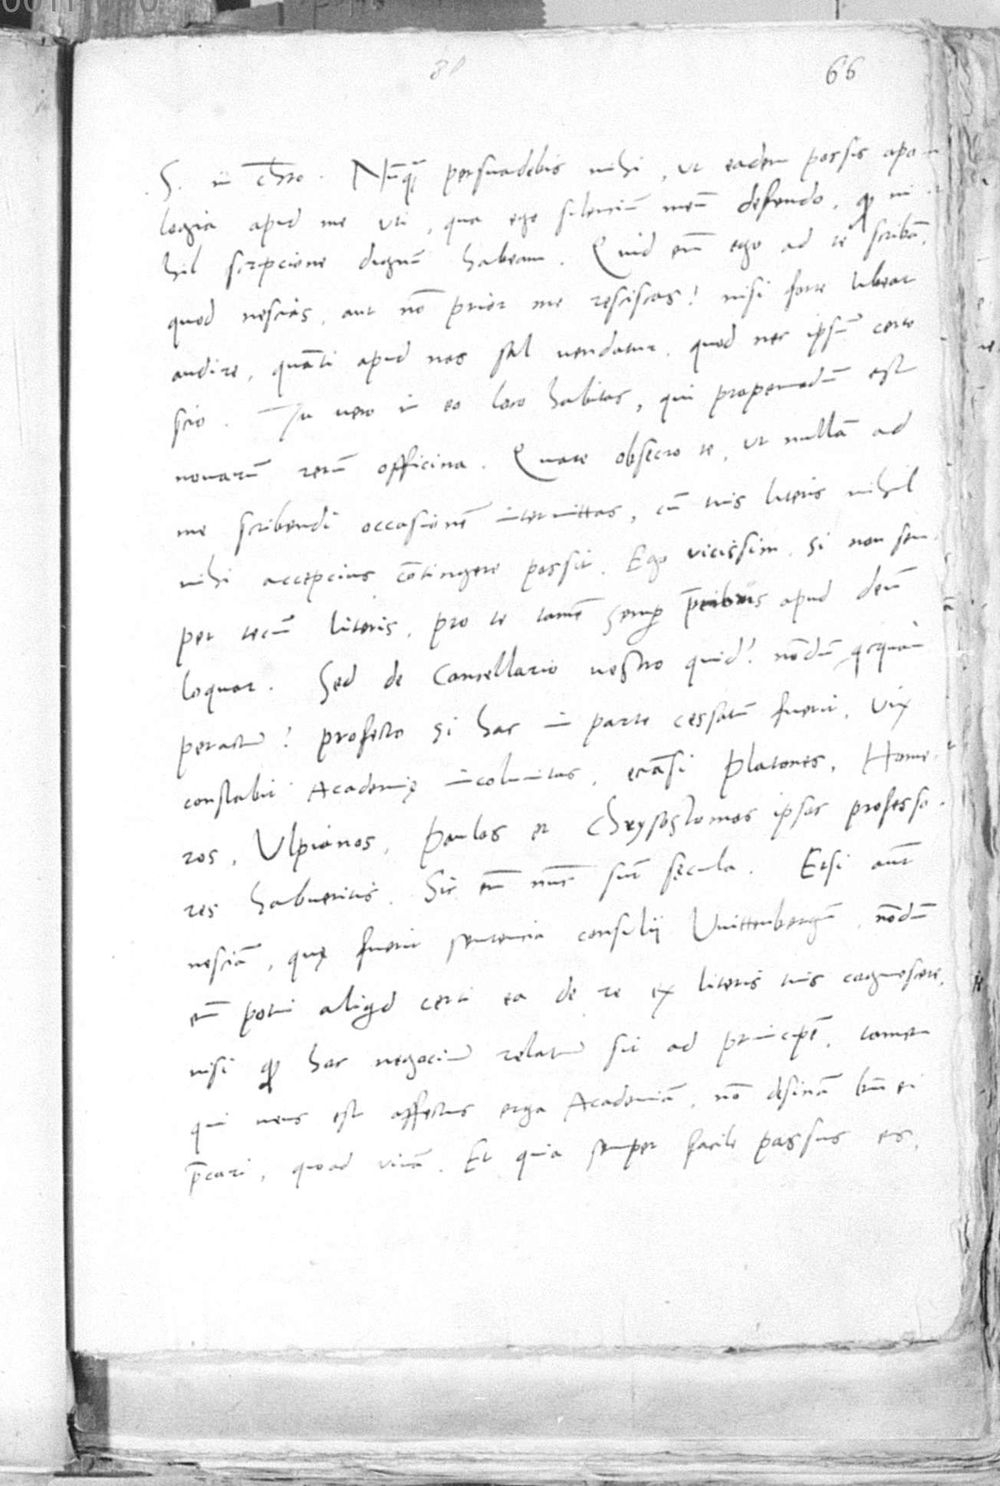 66
S. in Chro. Nūqȝ persuadebis mihi, ut eadem possis apo-
logia apud me uti, qua ego silenciū meū defendo, qȝ ni-
hil scrpcione dignū habeam. Quid em̄ ego ad te scribā,
quod nescias, aut nō prior me resciscas? nisi forte libeat
audire, quāti apud nos sal vendatur, quod nec ipsū certo
scio. Tu vero in eo loco habitas, qui propemodū est
novarū rerū officina. Quare obsecro te, ut nullā ad
me scribendi occasionē intermittas, cū tuis literis nihil
mihi accepcius cōtingere possit. Ego vicissim, si non sem-
per tecū literis, pro te tamē semꝑ p̄cibus apud deū
loquar. Sed de Cancellario vestro quid? nōdū qcquam
peractū? profecto si hac in parte cessatū fuerit, vix
constabit Academię incolumitas, etiāsi Platones, Home-
ros, Ulpianos, Paulos et Chrysostomos ipsos professo-
res habueritis. Sic em̄ nūc sūt sęcula. Etsi aūt
nesciā, quę fuerit sententia consilii Vuittenbergū, nōdū
em̄ potui aliqd certi ea de re ex literis tuis cognoscere,
nisi qȝ hoc negociū relatū sit ad principē, tamen
qui meus est affectus erga Academiā, nō desinā bn̄ ei
p̄cari, quoad vivā. Et quia semper facile passus es,